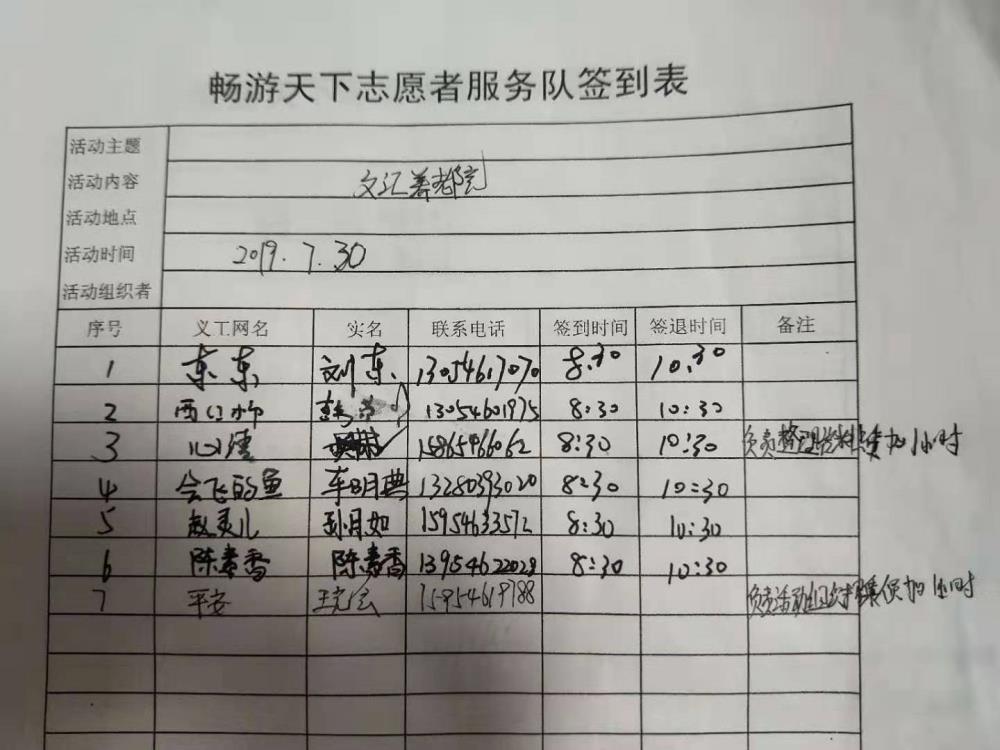 畅游天下志愿者服务队签到表
活动主题
活动内容 文汇养老院
活动地点
活动时间 2019.7.30
活动组织者
序号 义工网名 实名 联系电话 签到时间 签退时间 备注
1 东东 刘东 13054617070 8:30 10:30
2 西口柳 13054601975 8:30 10:30
3 心情 15865466062 8:30 10:30 负责整理资料 加1小时
4 会飞的鱼 车明典 13280393020 8:30 10:30
5 赵灵儿 孙月如 15954633572 8:30 10:30
6 陈素香 陈素香 13954622029 8:30 10:30
7 平安 15954619788 负责活动 加1小时